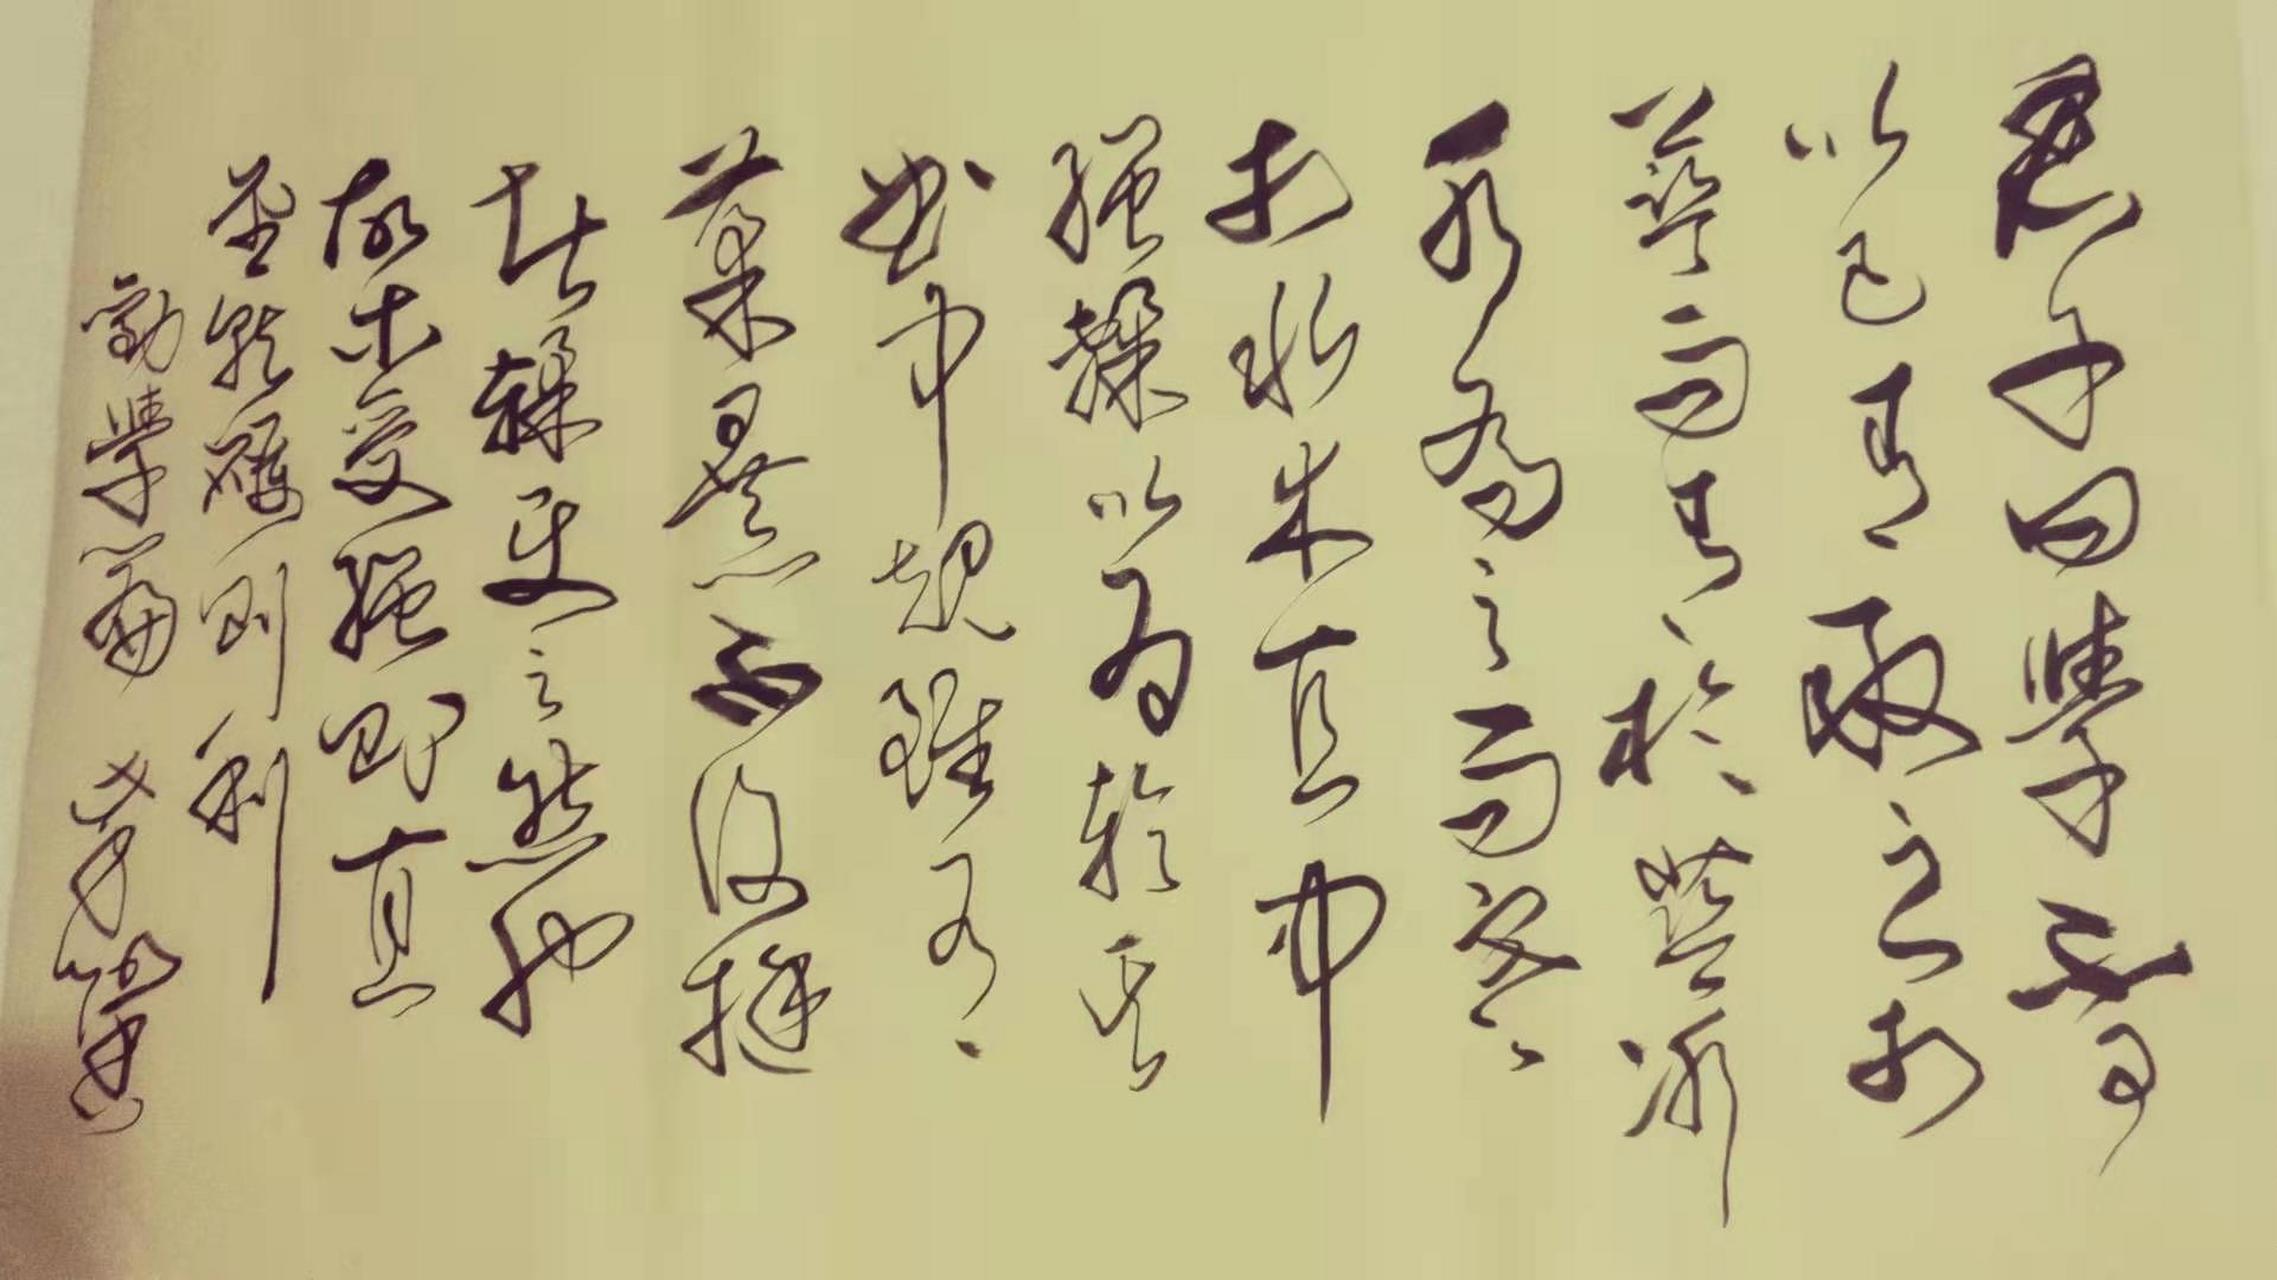 君子曰學不可
以已青取之於
藍而青於藍冰
水為之而寒
於水木直中
繩輮以為輪其
曲中規雖有
槁暴不復挺
者輮使之然也
故木受繩則直
金就礪則利
勸學篇